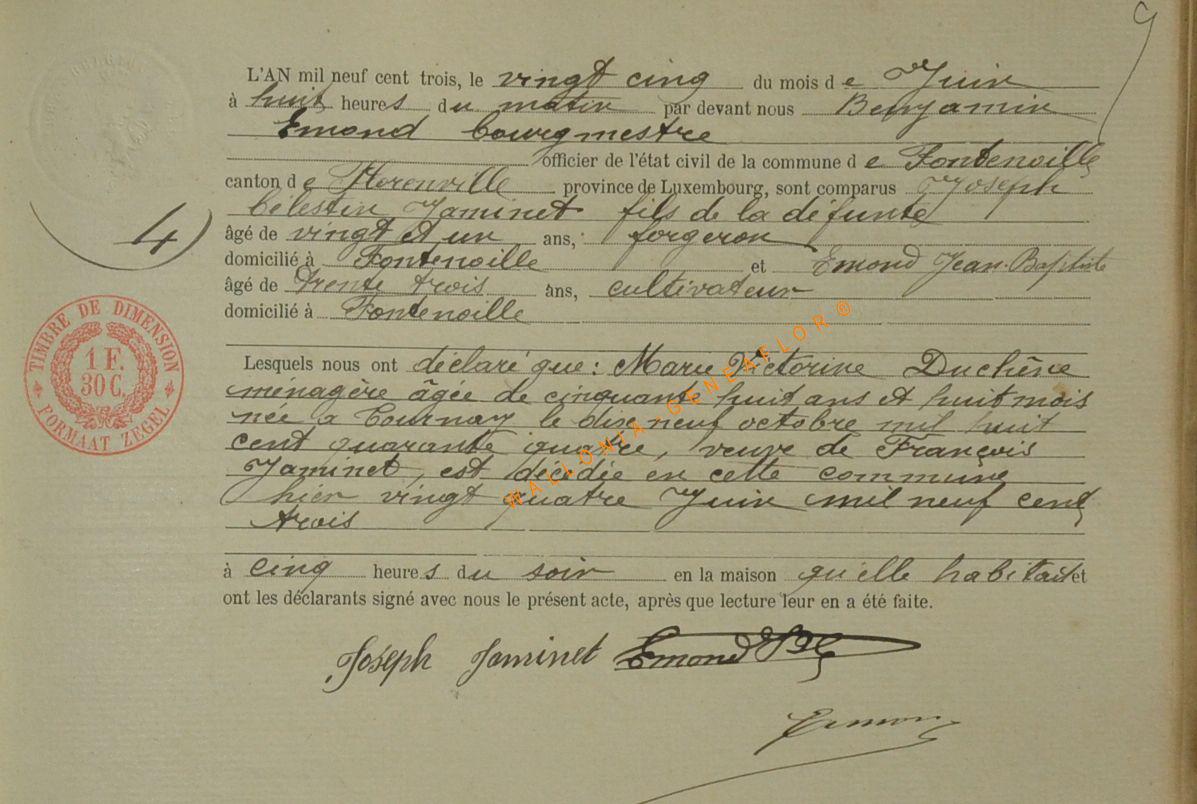 9
L'AN mil neuf cent trois, le vingt cinq du mois de Juin
à huit heures du matin par devant nous Benjamin
Emond bourgmestre
officier de l'état civil de la commune de Fontenoille
canton de Florenville province de Luxembourg, sont comparus Joseph
Célestin Jaminet fils de la défunte
4)
âgé de vingt et un ans, forgeron
domicilié à Fontenoille et Emond Jean-Baptiste
âgé de trente trois ans, cultivateur
domicilié à Fontenoille
TIMBRE DE DIMENSION
1 F.
30 C.
FORMAAT ZEGEL
Lesquels nous ont déclaré que: Marie Victorine Duchêne
ménagère âgée de cinquante huit ans et huit mois
née à Tournay le dix neuf octobre mil huit
cent quarante quatre, veuve de François
Jaminet, est décédée en cette commune
hier vingt quatre Juin mil neuf cent
trois
WALLONIA-GENEAFLOR®
à cinq heures du soir en la maison qu'elle habitait et
ont les déclarants signé avec nous le présent acte, après que lecture leur en a été faite.
Joseph Jaminet Emond